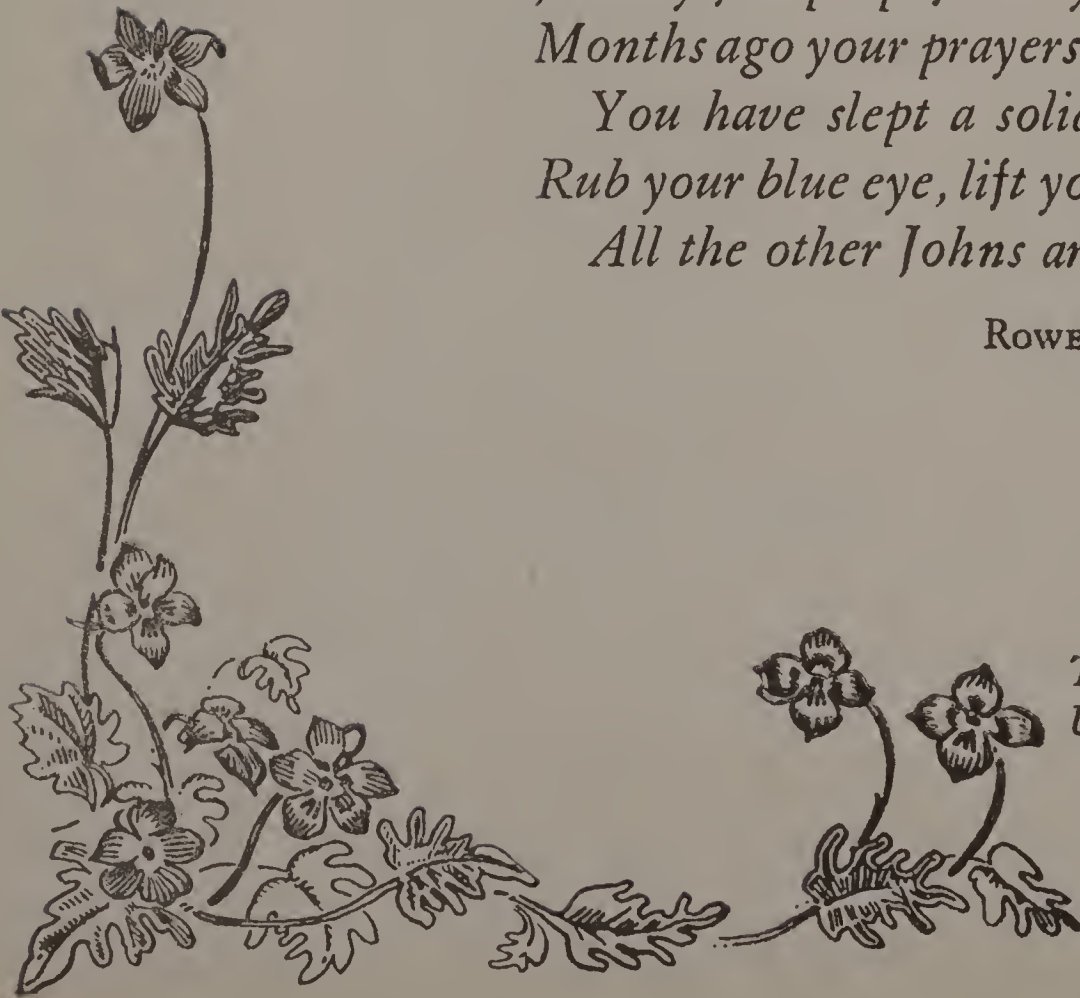 Months ago your prayers
You have slept a
Rub your blue eye, lift
All the other Johns